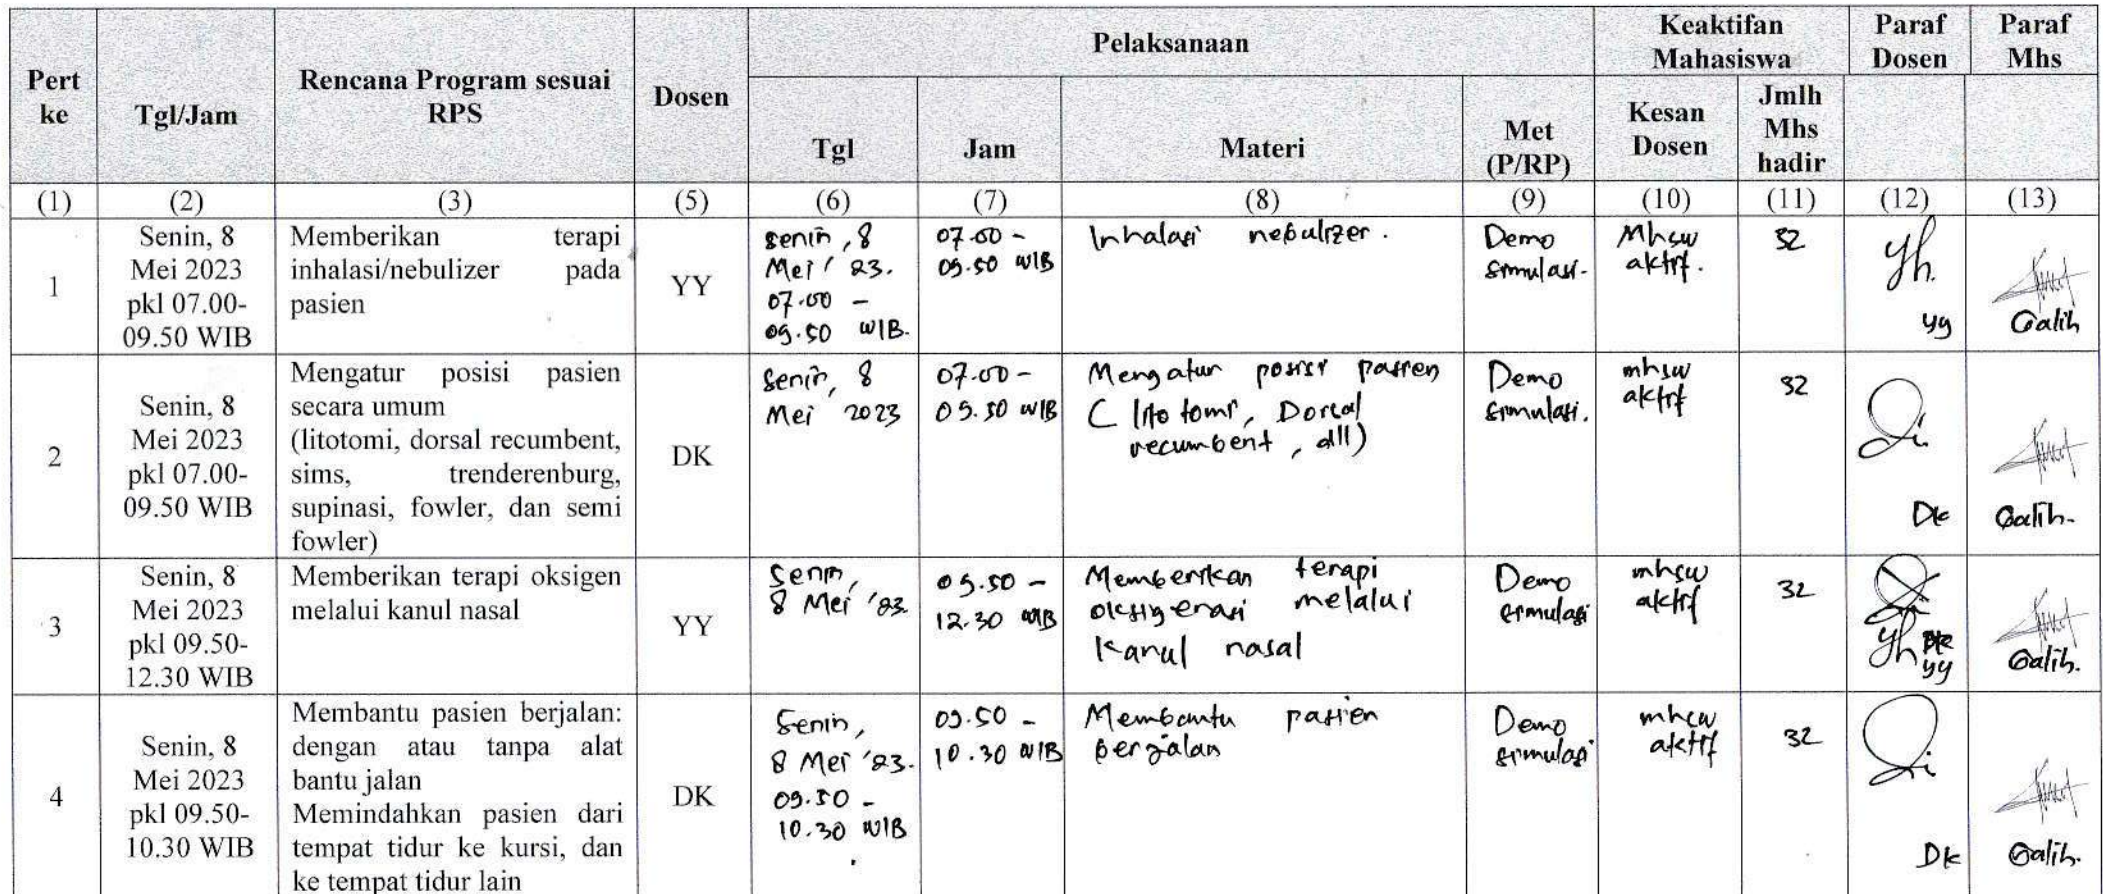 Pert ke
Tgl/Jam
Rencana Program sesuai
RPS
Dosen
Pelaksanaan
Keaktifan
Mahasiswa
Paraf
Dosen
Paraf
Mhs
Tgl
Jam
Materi
Met
(P/RP)
Kesan
Dosen
Jmlh
Mhs
hadir
(1) (2) (3) (5) (6) (7) (8) (9) (10) (11) (12) (13)
1
Senin, 8
Mei 2023
pkl 07.00-
09.50 WIB
Memberikan terapi
inhalasi/nebulizer pada
pasien
YY
Senin, 8
Mei '23.
07.00 -
09.50 WIB.
07.00 -
09.50 WIB
Inhalasi nebulizer.
Demo
simulasi.
Mhsw
aktif.
32
yy
Galih
2
Senin, 8
Mei 2023
pkl 07.00-
09.50 WIB
Mengatur posisi pasien
secara umum
(litotomi, dorsal recumbent,
sims, trenderenburg,
supinasi, fowler, dan semi
fowler)
DK
Senin, 8
Mei 2023
07.00 -
09.50 WIB
Mengatur posisi pasien
(litotomi, Dorsal
recumbent, dll)
Demo
simulasi.
mhsw
aktif
32
Dk
Galih.
3
Senin, 8
Mei 2023
pkl 09.50-
12.30 WIB
Memberikan terapi oksigen
melalui kanul nasal
YY
Senin,
8 Mei '23
09.50 -
12.30 WIB
Memberikan terapi
oksigenasi melalui
kanul nasal
Demo
simulasi
mhsw
aktif
32
yy
Galih.
4
Senin, 8
Mei 2023
pkl 09.50-
10.30 WIB
Membantu pasien berjalan:
dengan atau tanpa alat
bantu jalan
Memindahkan pasien dari
tempat tidur ke kursi, dan
ke tempat tidur lain
DK
Senin,
8 Mei '23.
09.50 -
10.30 WIB
09.50 -
10.30 WIB
Membantu pasien
berjalan
Demo
simulasi
mhsw
aktif
32
Dk
Galih.